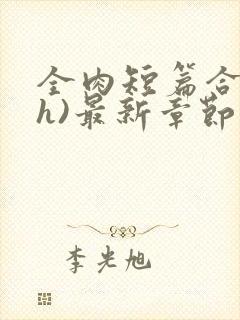 全肉短篇合
h)最新章节
李光旭